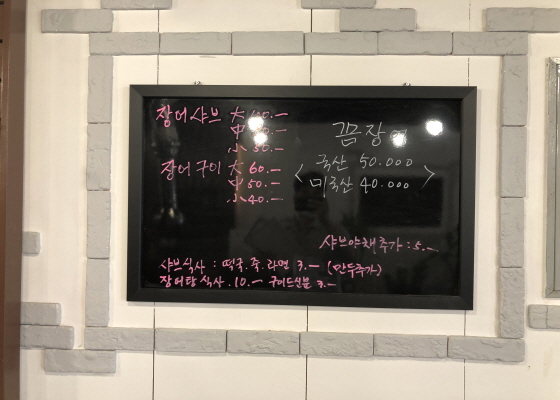 장어샤브 大
中
小 50.-
장어구이 大 60.-
中 50.-
小 40.-
꼼장어
< 국산 50.000
미국산 40.000 >
샤브야채추가 : 5.-
샤브식사 : 떡국.죽.라면 3.- (만두추가)
장어탕 식사. 10.- 구이드신분 3.-